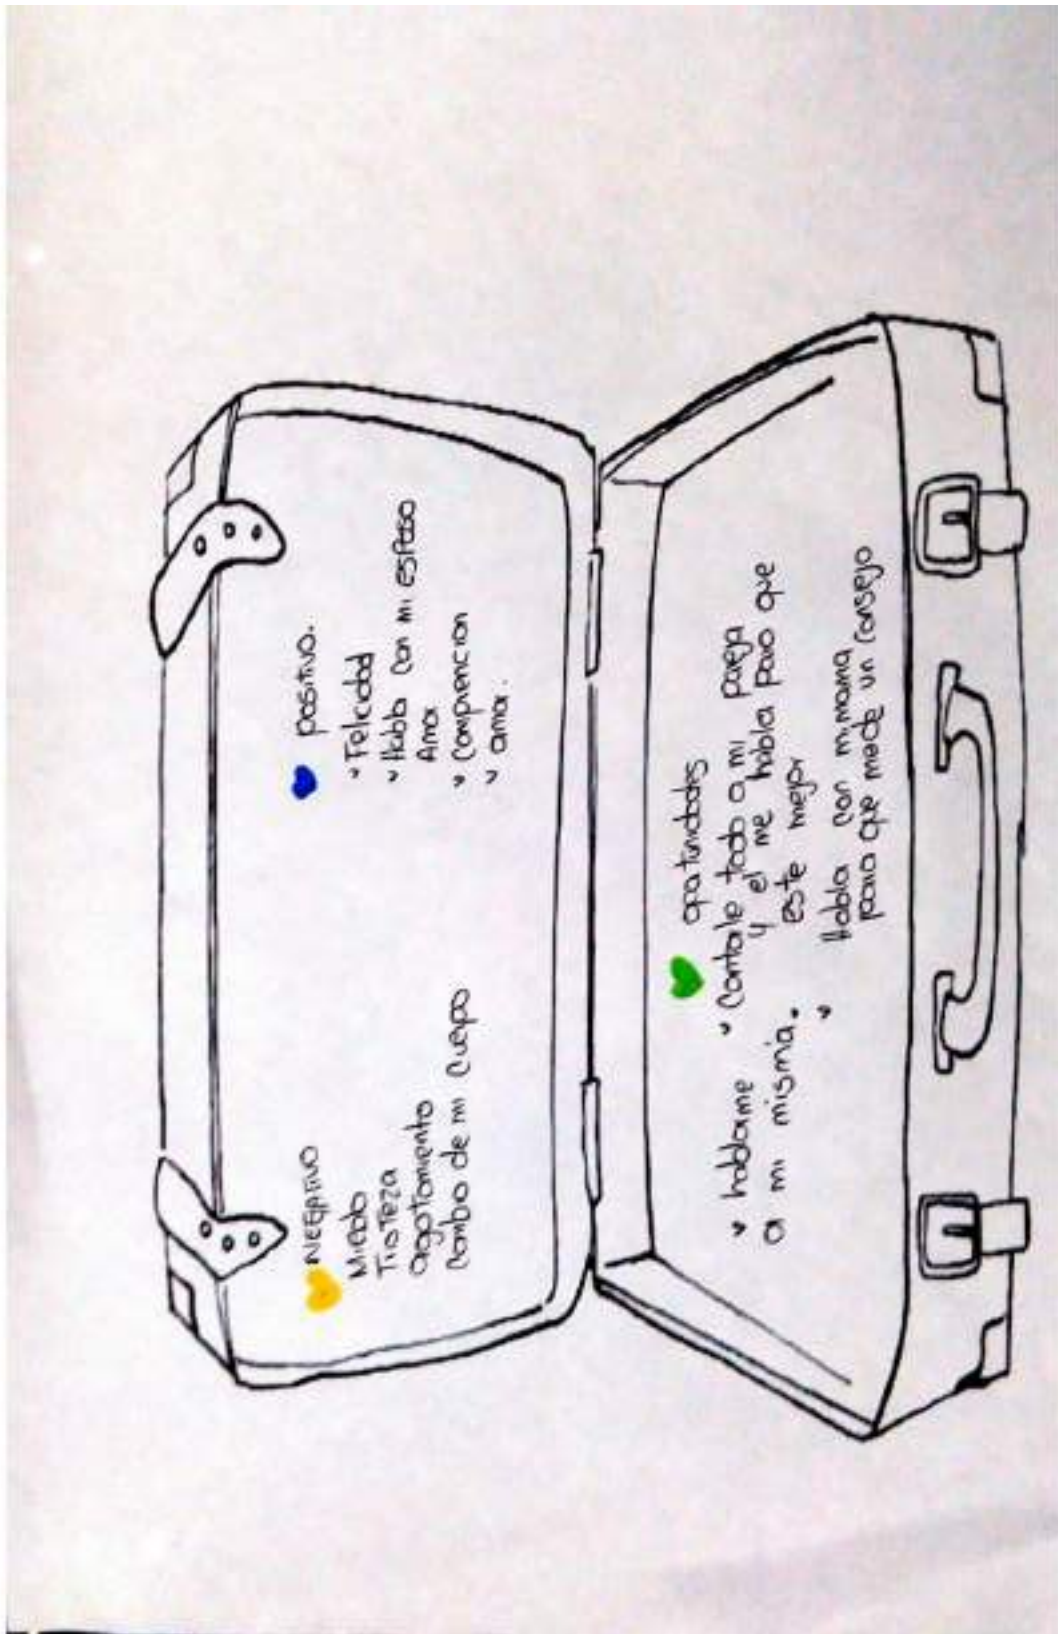 NEGATIVO
Miedo
Tristeza
agotamiento
Cambio de mi cuerpo
positivo.
Felicidad
Habla con mi esposo
Amor
Comprencion
amor.
oportunidades
hablarme
a mi misma.
Contarle todo a mi pareja
y el me habla para que
este mejor
Habla con mi mama
para que mede un consejo